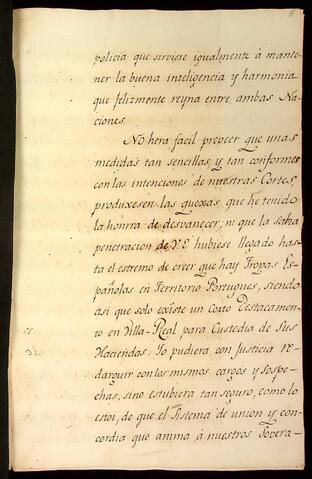 6
policia que sirviese igualmente á mante-
ner la buena inteligencia y harmonia
que felizmente reyna entre ambas Na-
ciones.
No hera facil preveer que unas
medidas tan sencillas, y tan conformes
con las intenciones de nuestras Cortes,
produxesen las Quexas que he tenido
la honrra de desvanecer, ni que la sabia
penetracion de V.E. hubiese llegado has-
ta el estremo de creer que hay Tropas Es-
pañolas en Territorio Portugues, siendo
asi que solo existe un Corto Destacamen-
to en Villa-Real para Custodia de sus
Haciendas. Yo pudiera con Justicia re-
darguir con los mismos cargos y sospe-
chas, sino estubiera tan seguro, como lo
estoi, de que el Sistema de union y con-
cordia que anima á nuestros Sobera-